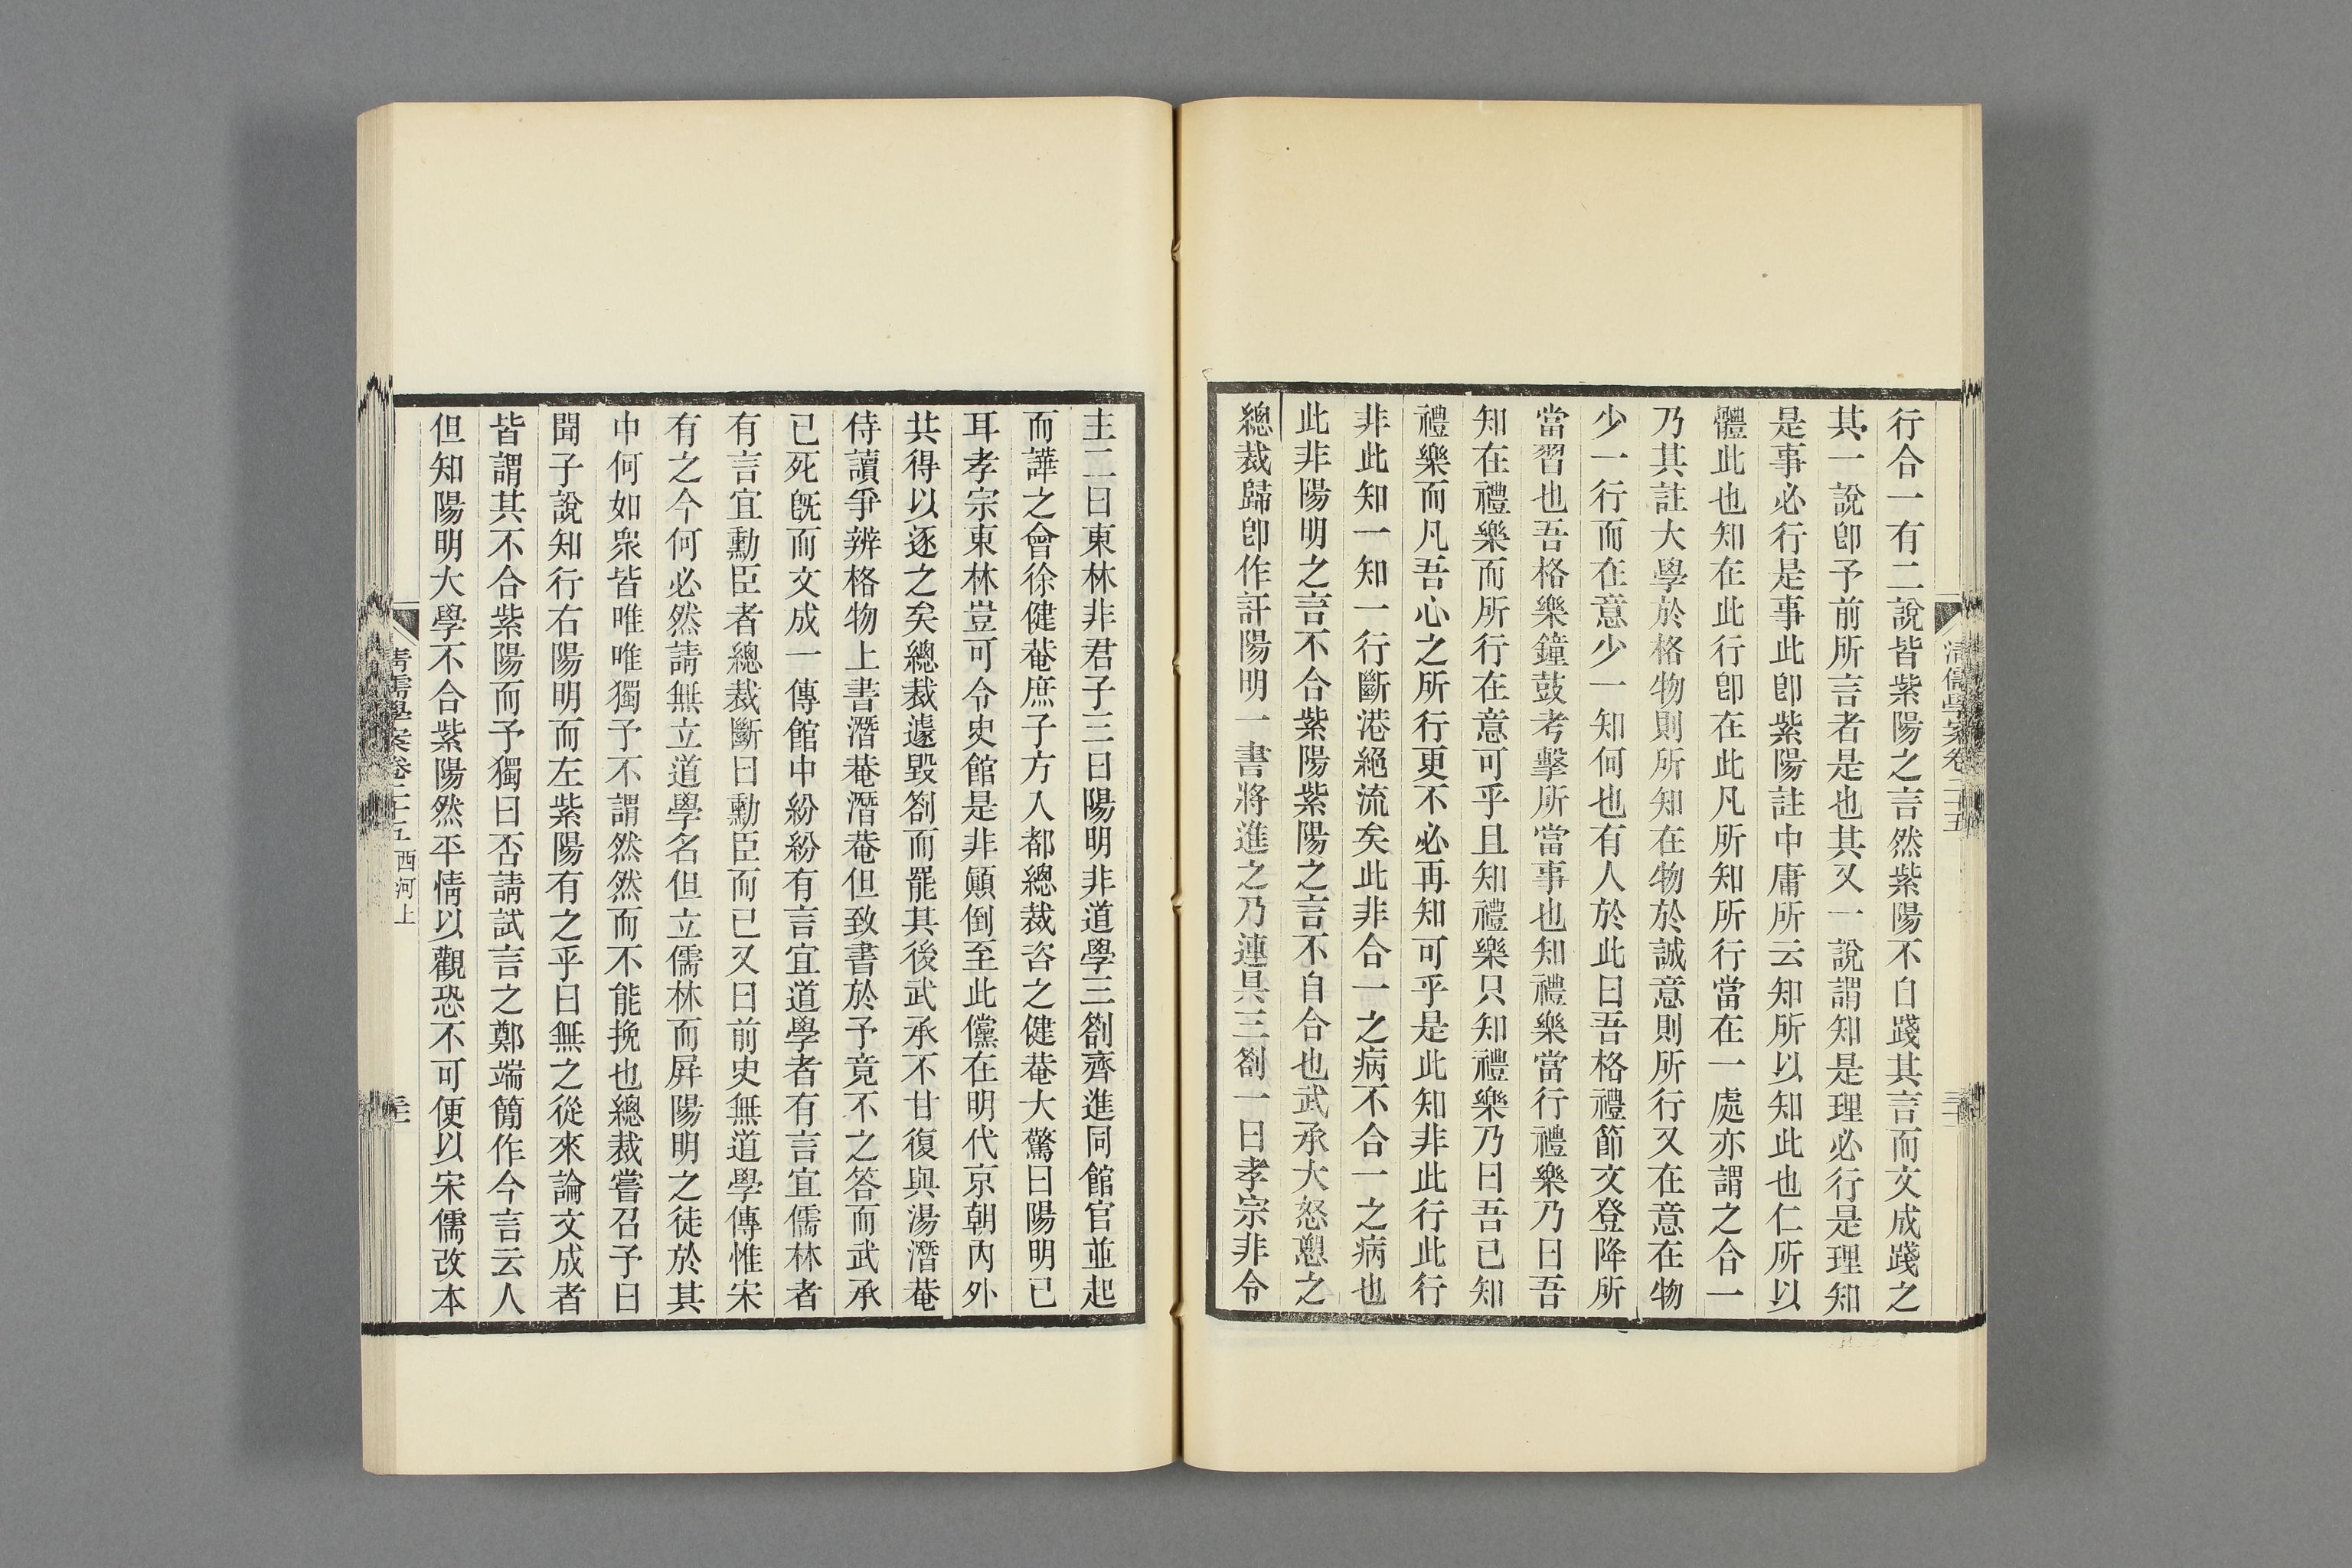 清儒學案卷二十五
行合一有二說皆紫陽之言然紫陽不自踐其言而文成踐之
其一說卽予前所言者是也其又一說謂知是理必行是理知
是事必行是事此卽紫陽註中庸所云知所以知此也仁所以
體此也知在此行卽在此凡所知所行當在一處亦謂之合一
乃其註大學於格物則所知在物於誠意則所行又在意在物
少一行而在意少一知何也有人於此曰吾格禮節文登降所
當習也吾格樂鐘鼓考擊所當事也知禮樂當行禮樂乃曰吾
知在禮樂而所行在意可乎且知禮樂只知禮樂乃曰吾已知
禮樂而凡吾心之所行更不必再知可乎是此知非此行此行
非此知一知一行斷港絕流矣此非合一之病不合一之病也
此非陽明之言不合紫陽紫陽之言不自合也武承大怒愬之
總裁歸卽作訐陽明一書將進之乃連具三劄一曰孝宗非令
主二曰東林非君子三曰陽明非道學三劄齊進同館官並起
而譁之會徐健菴庶子方入都總裁咨之健菴大驚曰陽明已
耳孝宗東林豈可令史館是非顚倒至此儻在明代京朝內外
共得以逐之矣總裁遽毀劄而罷其後武承不甘復與湯潛菴
侍讀爭辨格物上書潛菴潛菴但致書於予竟不之答而武承
已死旣而文成一傳館中紛紛有言宜道學者有言宜儒林者
有言宜勳臣者總裁斷曰勳臣而已又曰前史無道學傳惟宋
有之今何必然請無立道學名但立儒林而屏陽明之徒於其
中何如衆皆唯唯獨予不謂然然而不能挽也總裁嘗召予曰
聞子說知行右陽明而左紫陽有之乎曰無之從來論文成者
皆謂其不合紫陽而予獨曰否請試言之鄭端簡作今言云人
但知陽明大學不合紫陽然平情以觀恐不可便以宋儒改本
清儒學案卷二十五 西河上